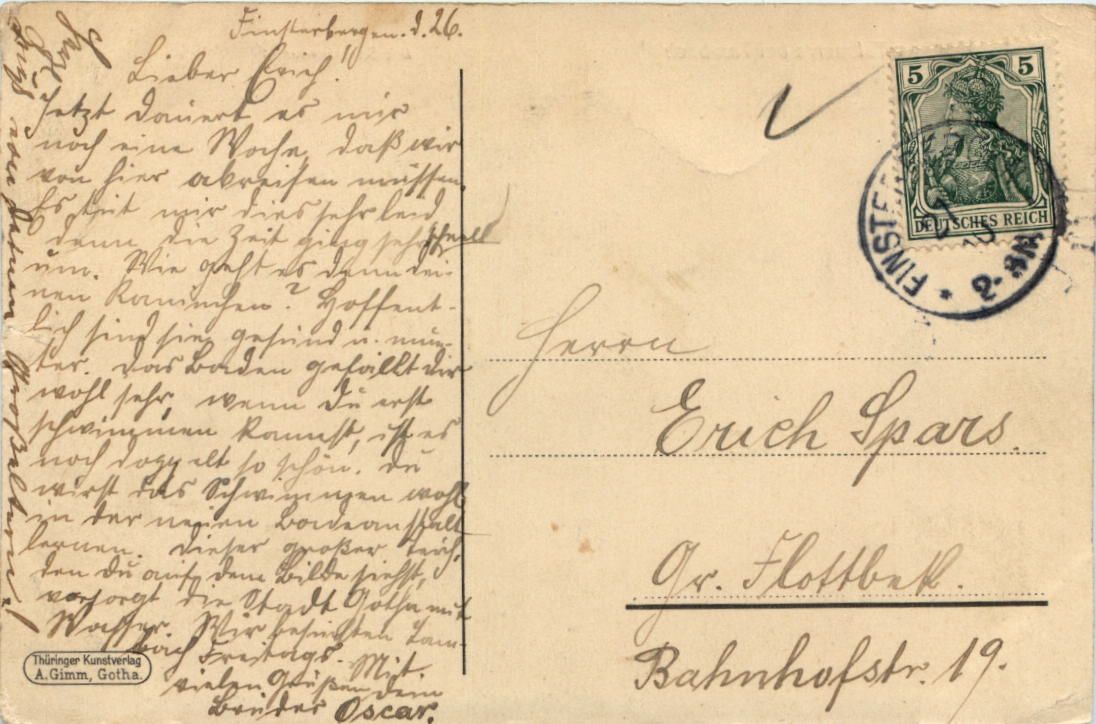 Finsterbergen. d. 26.
Lieber Erich!
Jetzt dauert es nur
noch eine Woche, daß wir
von hier abreisen müssen.
Es tut mir dies sehr leid
denn die Zeit ging sehr schnell
um. Wie geht es denn dei-
nen Kaninchen? Hoffent-
lich sind sie gesund u. mun-
ter. Das Baden gefällt dir
wohl sehr, wenn du erst
schwimmen kannst, ist es
noch doppelt so schön. Du
wirst das Schwimmen wohl
in der neuen Badeanstalt
lernen. Dieser große Teich,
den du auf dem Bilde siehst,
versorgt die Stadt Gotha mit
Wasser. Wir besuchten Tam-
bach Freitags. Mit
vielen Grüßen dein
Bruder Oscar.
Großeltern!
Thüringer Kunstverlag
A. Gimm, Gotha.
5 5
DEUTSCHES REICH
FINSTERB
27
2-3N
Herrn
Erich Spars.
Gr. Flottbek.
Bahnhofstr. 19.